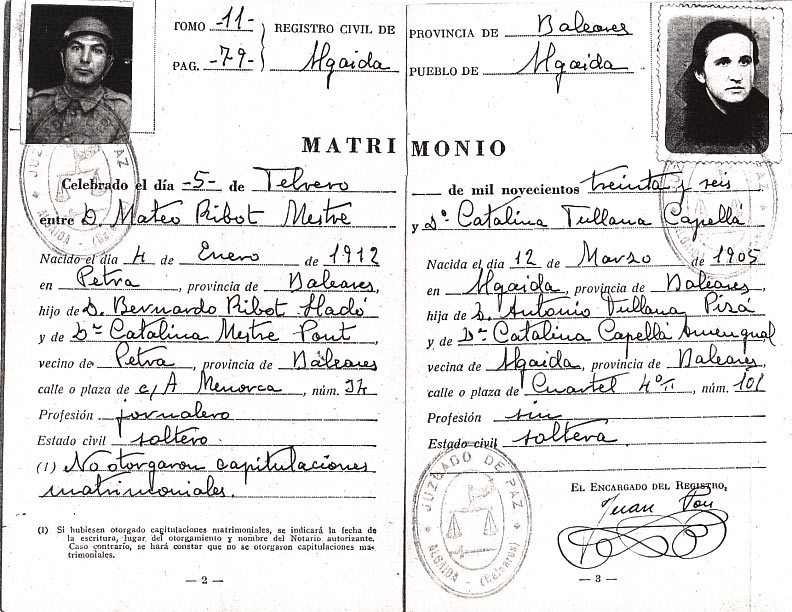 TOMO -11-
PAG. -79-
REGISTRO CIVIL DE
Algaida
MATRIMONIO
Celebrado el día -5- de Febrero
entre D. Mateo Ribot Mestre
Nacido el dia 4 de Enero de 1912
en Petra, provincia de Baleares,
hijo de D. Bernardo Ribot
y de Dª Catalina Mestre Pont
vecino de Petra, provincia de Baleares
calle o plaza de c/ A Menorca, núm. 34
Profesión jornalero
Estado civil soltero
(1) No otorgaron capitulaciones
matrimoniales.
(1) Si hubiesen otorgado capitulaciones matrimoniales, se indicará la fecha de
la escritura, lugar del otorgamiento y nombre del Notario autorizante.
Caso contrario, se hará constar que no se otorgaron capitulaciones ma-
trimoniales.
— 2 —
PROVINCIA DE Baleares
PUEBLO DE Algaida
de mil novecientos treinta y seis
y Dª Catalina Fullana Capellá
Nacida el día 12 de Marzo de 1905
en Algaida, provincia de Baleares,
hija de D. Antonio Fullana Pizá
y de Dª Catalina Capellá Amengual
vecina de Algaida, provincia de Baleares,
calle o plaza de Cuartel 4º, núm. 101
Profesión sin
Estado civil soltera
EL ENCARGADO DEL REGISTRO,
Juan Pou
JUZGADO DE PAZ
ALGAIDA - (Baleares)
— 3 —